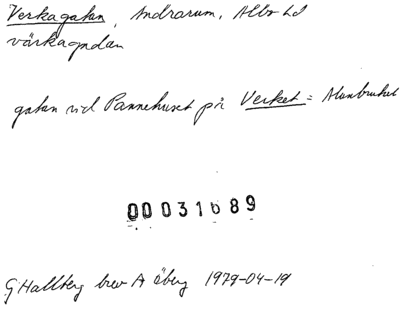 Verkagatan, Andrarum, Albo hd
värkagadan
gatan vid Pannehuset på Verket = Alunbruket
00031689
G Hallberg brev A Öberg 1979-04-19